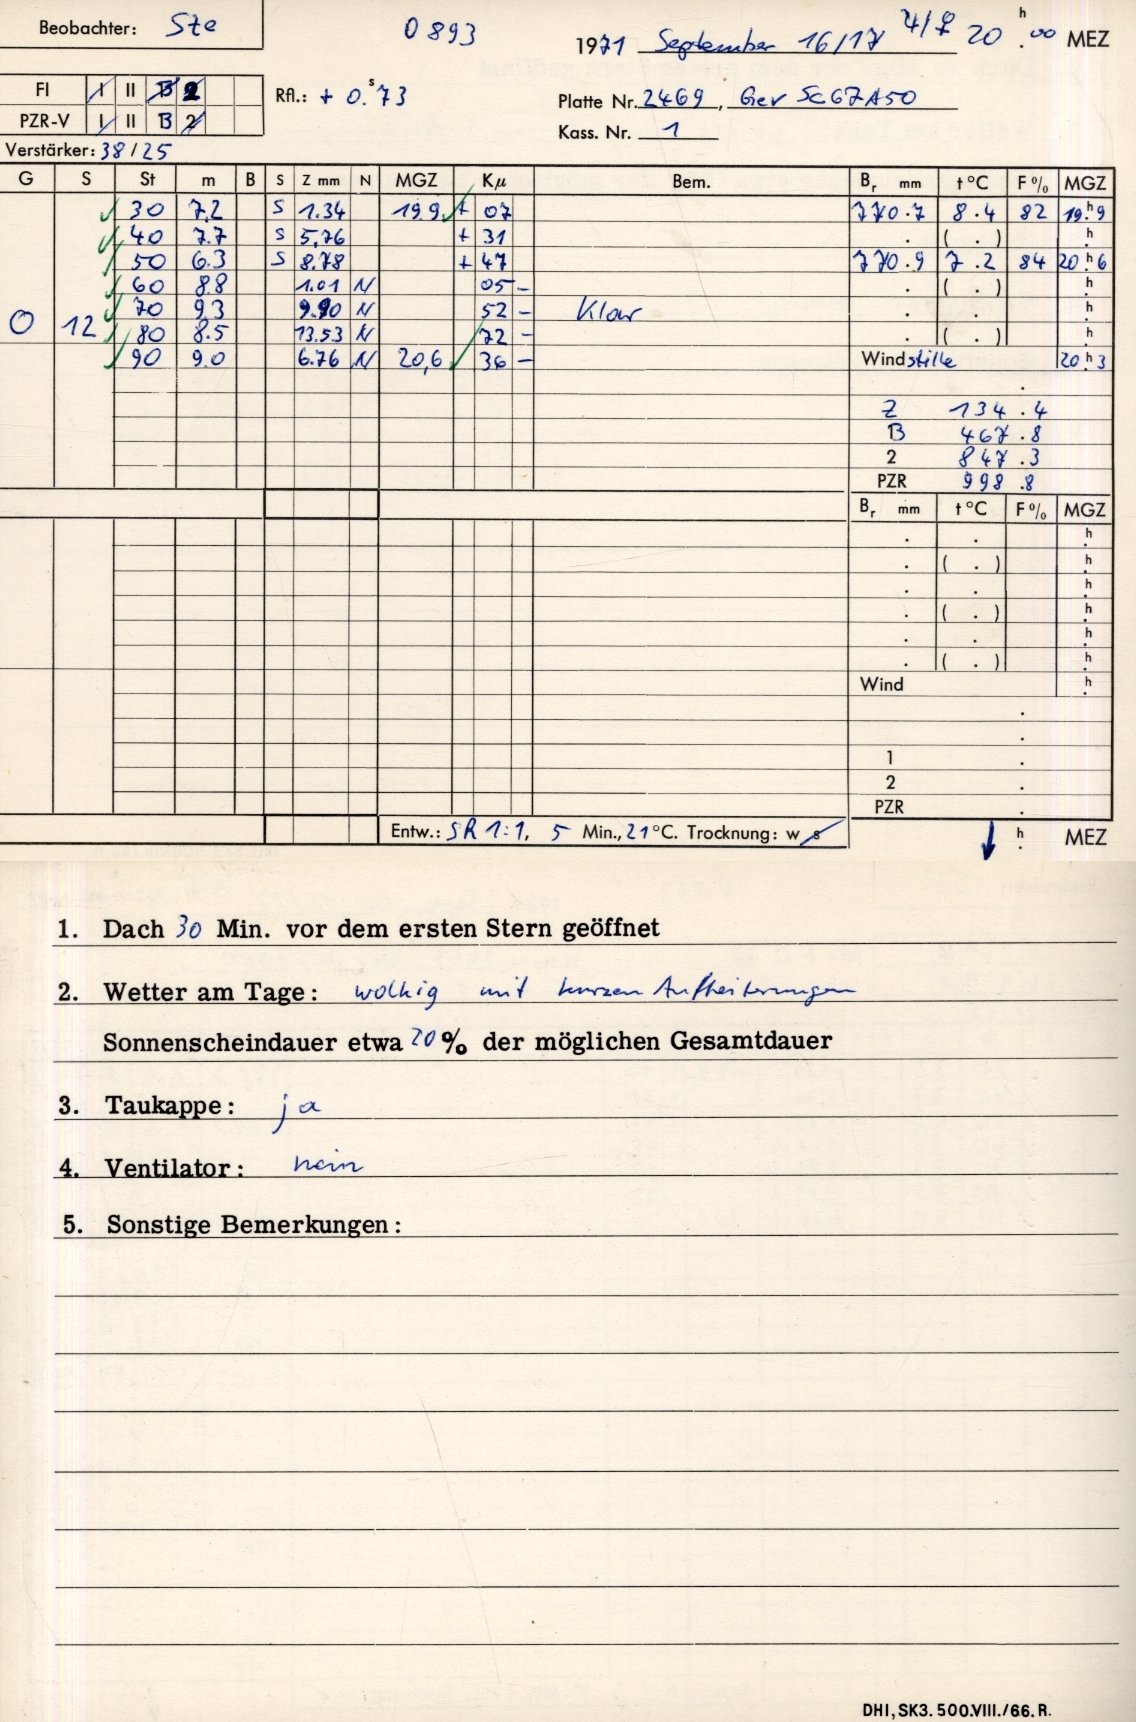 Beobachter: Ste
0893
1971 September 16/17 4/♀ 20.ʰ00 MEZ
FI I II B 2
PZR-V I II B 2
Rfl.: + 0.ˢ73
Platte Nr. 2469, Gev Sc67A50
Kass. Nr. 1
Verstärker: 38/25
G S St m B S Z mm N MGZ Kμ Bem. Bᵣ mm t °C F % MGZ
30 7.2 S 1.34 19.9 + 07 770.7 8.4 82 19.ʰ9
40 7.7 S 5.76 + 31 . ( . ) .ʰ
50 6.3 S 8.78 + 47 770.9 7.2 84 20.ʰ6
60 8.8 1.01 N 05 - . ( . ) .ʰ
0 12 70 9.3 9.90 N 52 - Klar . . .ʰ
80 8.5 13.53 N 72 - . ( . ) .ʰ
90 9.0 6.76 N 20,6 36 - Windstille 20.ʰ3
.
Z 134.4
B 467.8
2 847.3
PZR 998.8
Bᵣ mm t °C F % MGZ
. . .ʰ
. ( . ) .ʰ
. . .ʰ
. ( . ) .ʰ
. . .ʰ
. ( . ) .ʰ
Wind .ʰ
.
.
1 .
2 .
PZR .
Entw.: SR 1:1, 5 Min., 21 °C. Trocknung: w s
↓ .ʰ MEZ
1. Dach 30 Min. vor dem ersten Stern geöffnet
2. Wetter am Tage: wolkig mit kurzen Aufheiterungen
Sonnenscheindauer etwa 20 % der möglichen Gesamtdauer
3. Taukappe: ja
4. Ventilator: nein
5. Sonstige Bemerkungen:
DHI, SK3. 500.VIII./66. R.